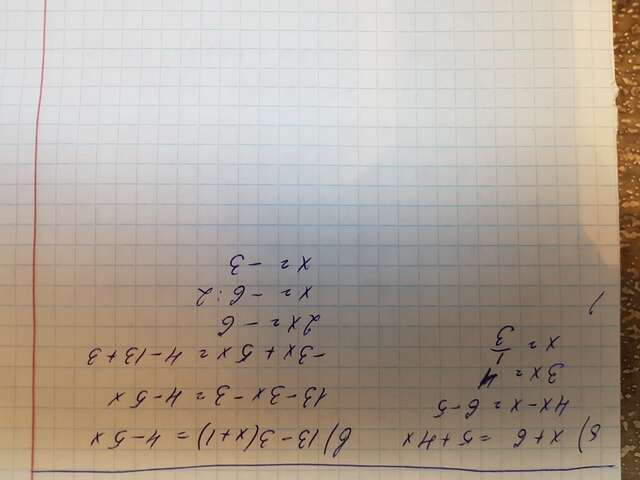 б) x + 6 = 5 + 4x
4x - x = 6 - 5
3x = 1
x = 1/3
в) 13 - 3(x+1) = 4 - 5x
13 - 3x - 3 = 4 - 5x
-3x + 5x = 4 - 13 + 3
2x = -6
x = -6 : 2
x = -3